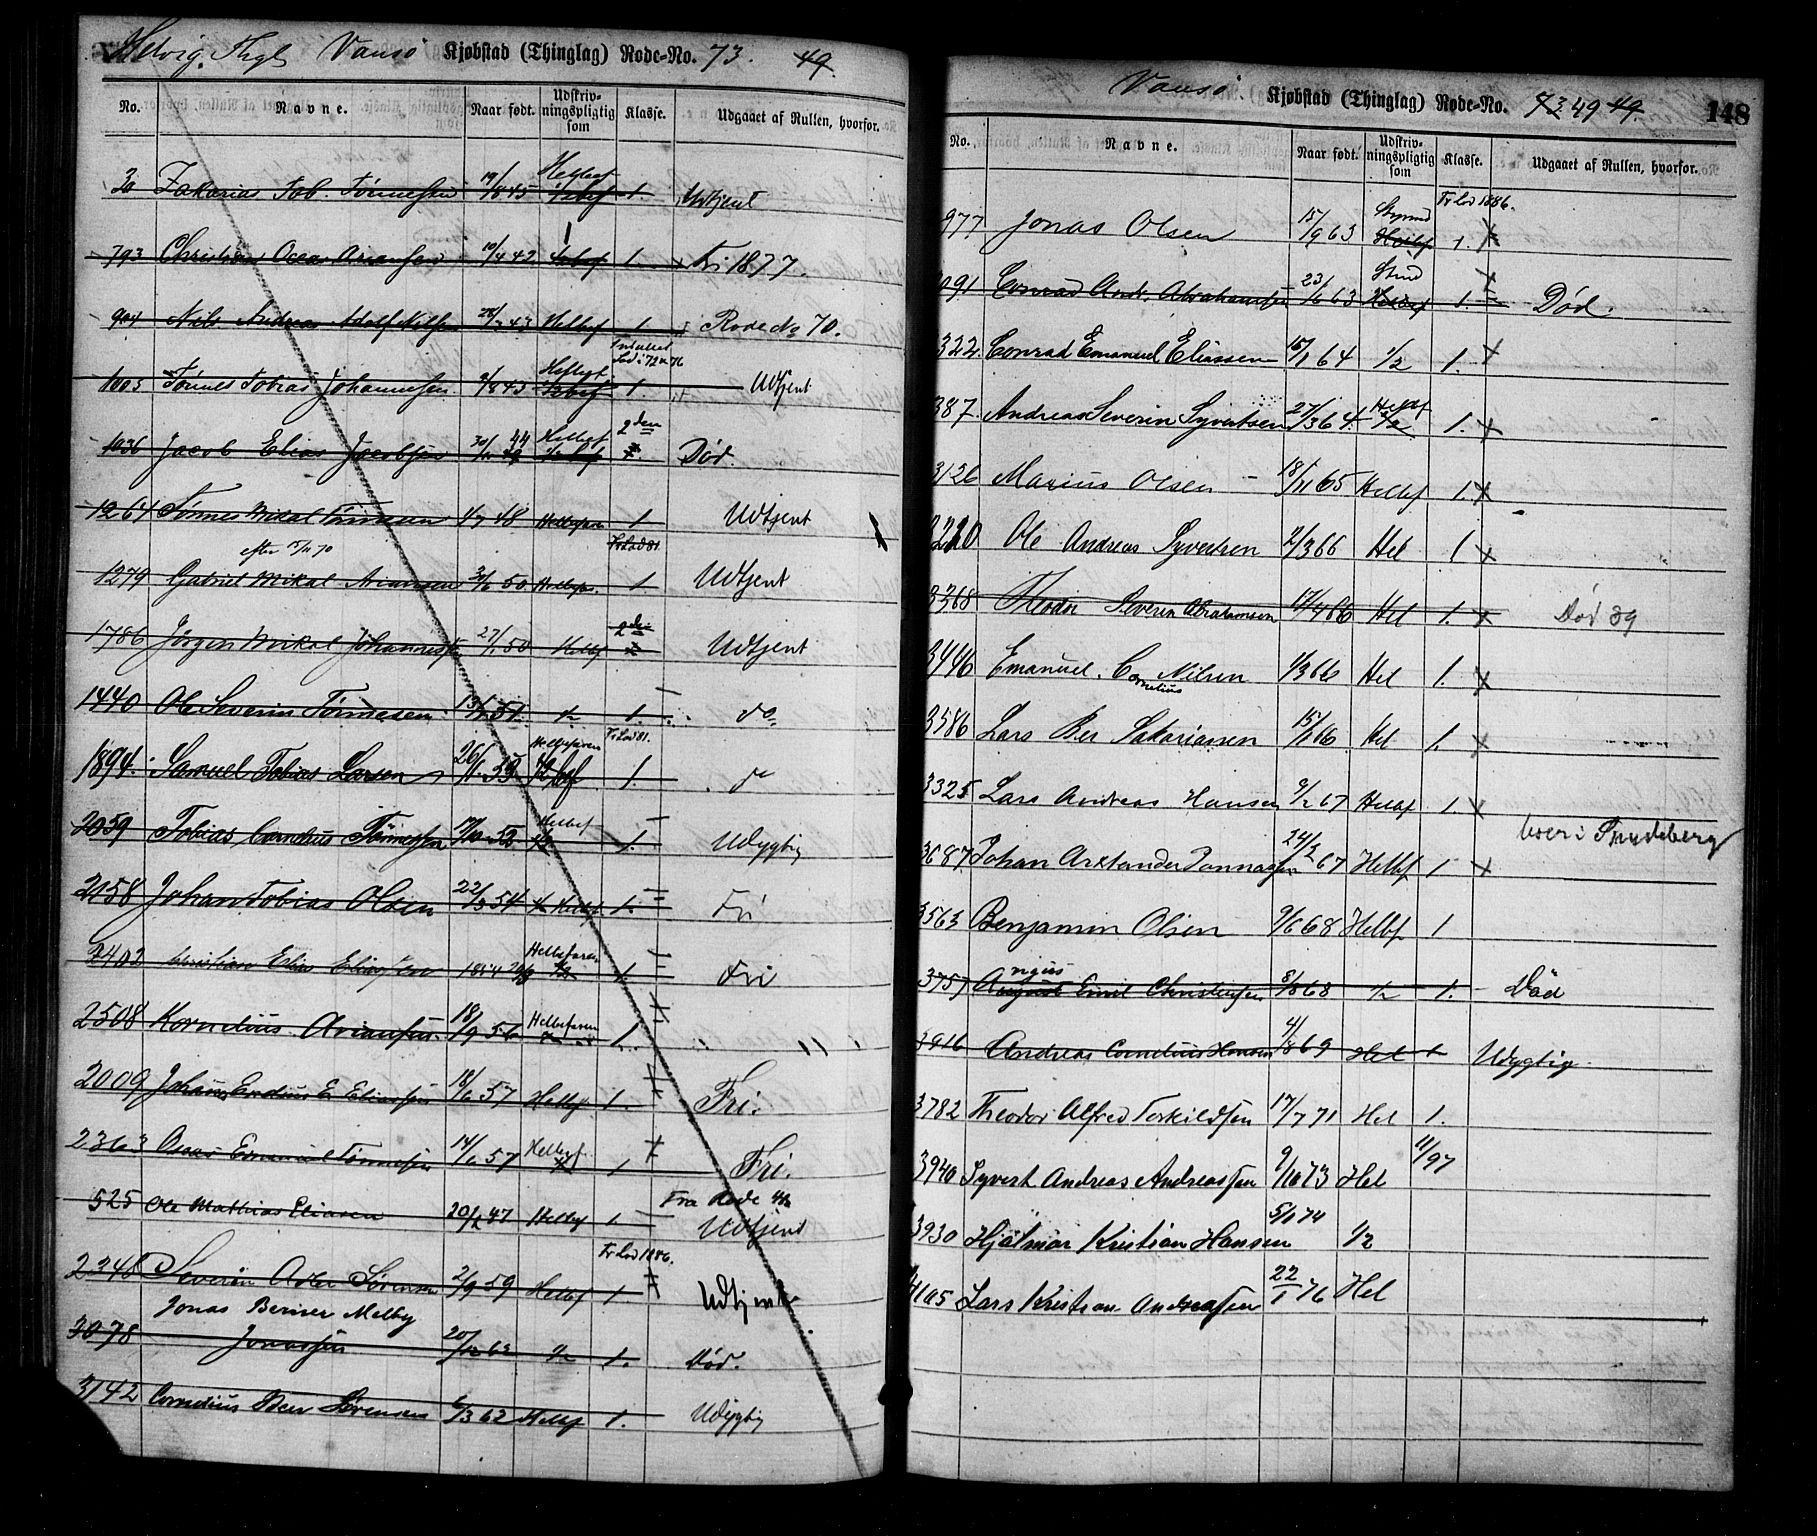 Helvig Thgl Vansø Kjøbstad (Thinglag) Rode-No. 73. 49.
No. Navne. Naar født. Udskriv-ningspligtig som Klasse. Udgaaet af Rullen, hvorfor.
30 Zakarias Tob. Tønnessen 19/8 45 Helbef 1 Udtjent
793 Christian Ocea Ariansen 10/4 42 1. Fri 1877.
904 Nils Andreas Adolf Nilsen 43 Helbef 1 Rode No 70.
1003 Tønnes Tobias Johannessen 9/8 43 Helbef 1. Udtjent
1036 Jacob Elias Jacobsen 44 Helbef 2den Død.
1264 Tønnes Mikal Tønnesen 4/7 48 Helbefaren 1 Udtjent
efter 15/11 70 Fr Lod 81.
1279 Gabriel Mikal Ariansen 50 Helbefar. 1 Udtjent
1786 Jørgen Mikal Johannessen 27/1 50 Helbf 2den Udtjent
1440 Ole Severin Tønnesen 51. 1. do
Fr Lod 81.
1894. Samuel Tobias Larsen 26/1 53 Helbefaren 1. do
2059 Tobias Cornelius Tønnessen 17/10 52 Helbef 1. Udygtig
2158 Johan Tobias Olsen 22/3 54 Helbef 1. Fri
2402 Christian Elias Eliassen 1854 Helbefaren 1. Fri
2508 Kornelius Ariansen. 18/9 56 Helbefaren 1. "
2009 Johan Endius E. Eliassen 18/6 57 Helbef 1. Fri.
2363 Oskar Emanuel Tønnessen 14/6 57 Helbef 1 Fri.
525 Ole Mathias Eliasen 20/2 47 Helbef 1 Fra Rode 42 Udtjent
Fr Lod 1886.
2348 Severin Adler Sørensen 2/9 59 Helbef 1. Udtjent
Jonas Berner Melby
3078 Jonassen 20/12 62 1/2 1. Død.
3142 Cornelius Ber Sørensen 6/3 62 Helbf 1. Udygtig
Vansø Kjøbstad (Thinglag) Rode-No. 73 49 49. 148
No. Navne. Naar født. Udskriv-ningspligtig som Klasse. Udgaaet af Rullen, hvorfor.
Fr Lod 1886.
977 Jonas Olsen 15/9 63 Helbf 1.
091 Conrad And. Abrahamsen 23/6 63 1. Død.
322 Conrad Emanuel Eliassen 16/1 64 1/2 1.
387. Andreas Severin Syvertsen 27/3 64 Helbf 1/2 1.
3126 Marius Olsen 18/11 65 Helbf 1.
2210 Ole Andreas Syvertsen 2/3 66 Hel 1
3368 Theodor Severin Abrahamsen 17/4 66 Hel 1. Død 89
3446 Emanuel Cornelius Nilsen 1/3 66 Hel 1.
3586 Lars Ber Sakariasen 15/ 66 Hel 1.
3325 Lars Andreas Hansen 9/2 67 Helbf 1.
boer i
3687 Johan Alexander 24/3 67 Helbf 1
3563 Benjamin Olsen 9/6 68 Helbf 1
3757 August Emil Christensen 8/8 68 1/2 1. Død
3916 Andreas Cornelius Hansen 4/8 69 Hel 1 Udygtig
3782 Theodor Alfred Torkildsen 17/7 71 Hel 1.
3940 Syvert Andreas Andreassen 9/10 73 Hel 11/97
3930 Hjalmar Kristian Hansen 5/1 74 1/2
4105 Lars Kristian Andreassen 22/1 76 Hel